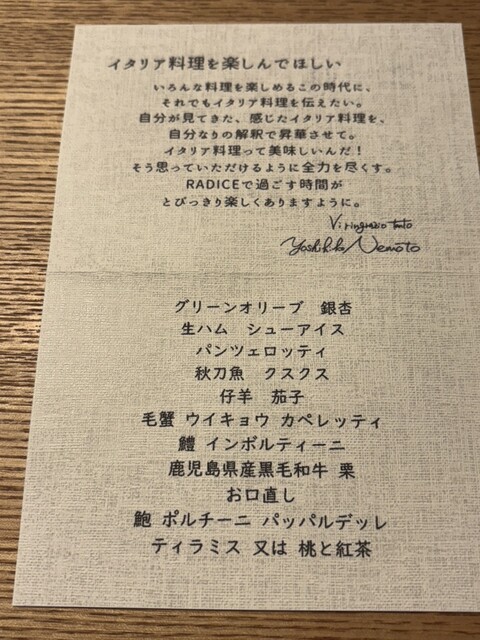 イタリア料理を楽しんでほしい
いろんな料理を楽しめるこの時代に、
それでもイタリア料理を伝えたい。
自分が見てきた、感じたイタリア料理を、
自分なりの解釈で昇華させて。
イタリア料理って美味しいんだ！
そう思っていただけるように全力を尽くす。
RADICEで過ごす時間が
とびっきり楽しくありますように。
Vi ringrazio tanto
Yoshihiko Nemoto
グリーンオリーブ 銀杏
生ハム シューアイス
パンツェロッティ
秋刀魚 クスクス
仔羊 茄子
毛蟹 ウイキョウ カペレッティ
鱧 インボルティーニ
鹿児島県産黒毛和牛 栗
お口直し
鮑 ポルチーニ パッパルデッレ
ティラミス 又は 桃と紅茶